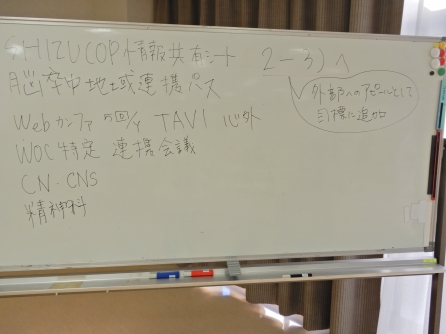 SHIZUCOP情報共有シート
脳卒中地域連携パス
Webカンファ 回/Y TAVI 心外
WOC特定 連携会議
CN・CNS
精神科
2-3)へ
外部へのアピールとして
目標に追加